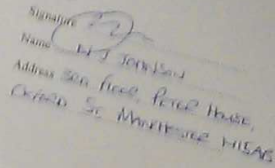 Signature
Name W J JOHNSON
Address 3RD FLOOR, PETER HOUSE,
OXFORD ST MANCHESTER M15AB